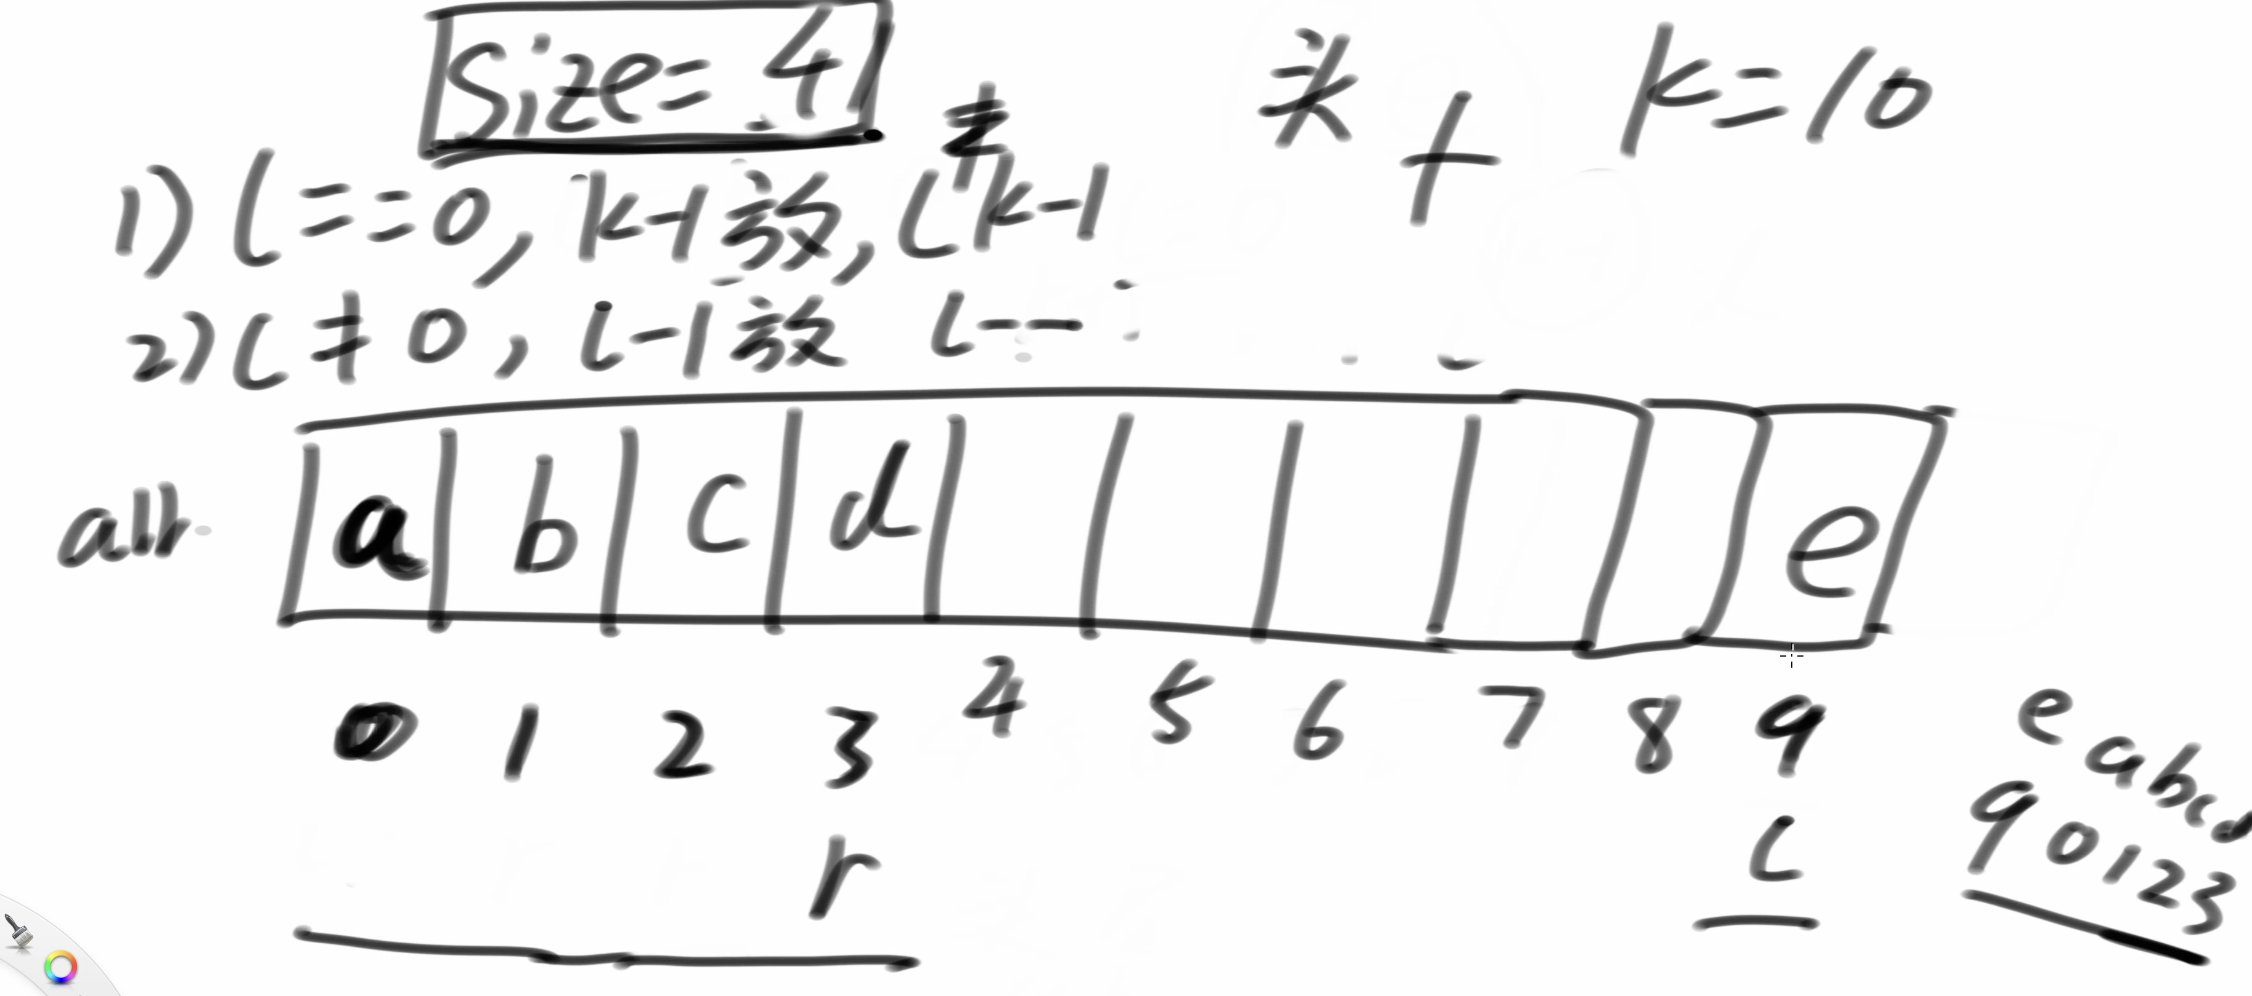 size=4
头 + k=10
1) l==0, k-1放, l去k-1
2) l≠0, l-1放 l--
arr a b c d e
0 1 2 3 4 5 6 7 8 9
r l
e a b c d
9 0 1 2 3